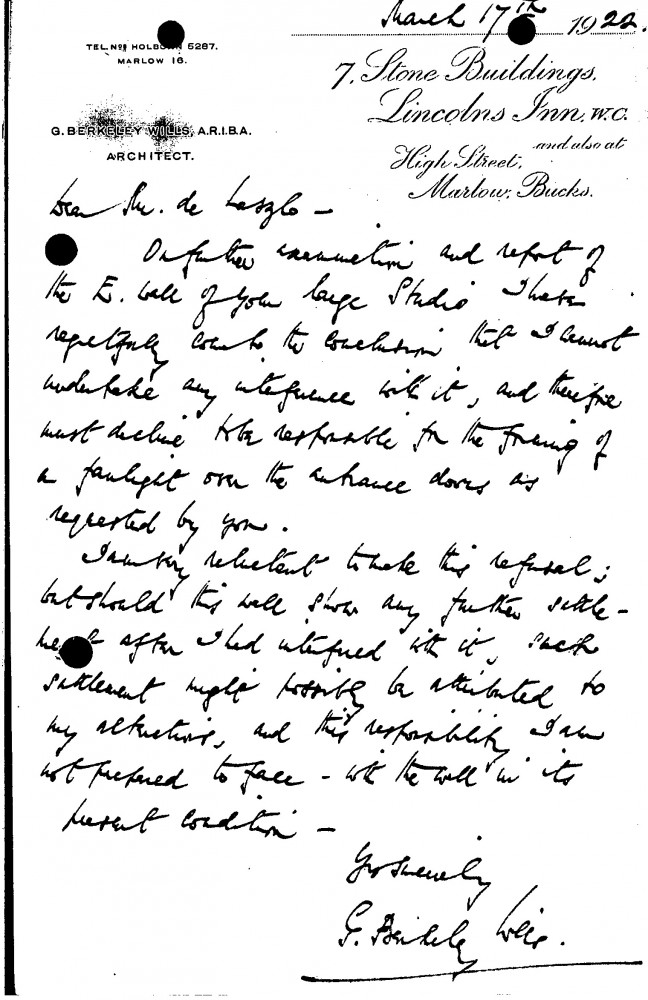 March 17th 1922.
TEL. NOS HOLBORN 5287.
MARLOW 16.
7, Stone Buildings,
Lincolns Inn, W.C.
and also at
High Street,
Marlow, Bucks.
G. BERKELEY WILLS, A.R.I.B.A.
ARCHITECT.
Dear Mr. de Laszlo –
On further examination and report of
the E. wall of your large Studio I have
regretfully come to the conclusion that I cannot
undertake any interference with it, and therefore
must decline to be responsible for the forming of
a fanlight over the entrance doors as
requested by you.
I am very reluctant to make this refusal;
but should this wall show any further settle-
ment after I had interfered with it, such
settlement might possibly be attributed to
my alterations, and this responsibility I am
not prepared to face – with the wall in its
present condition –
Yrs sincerely
G. Berkeley Wills.